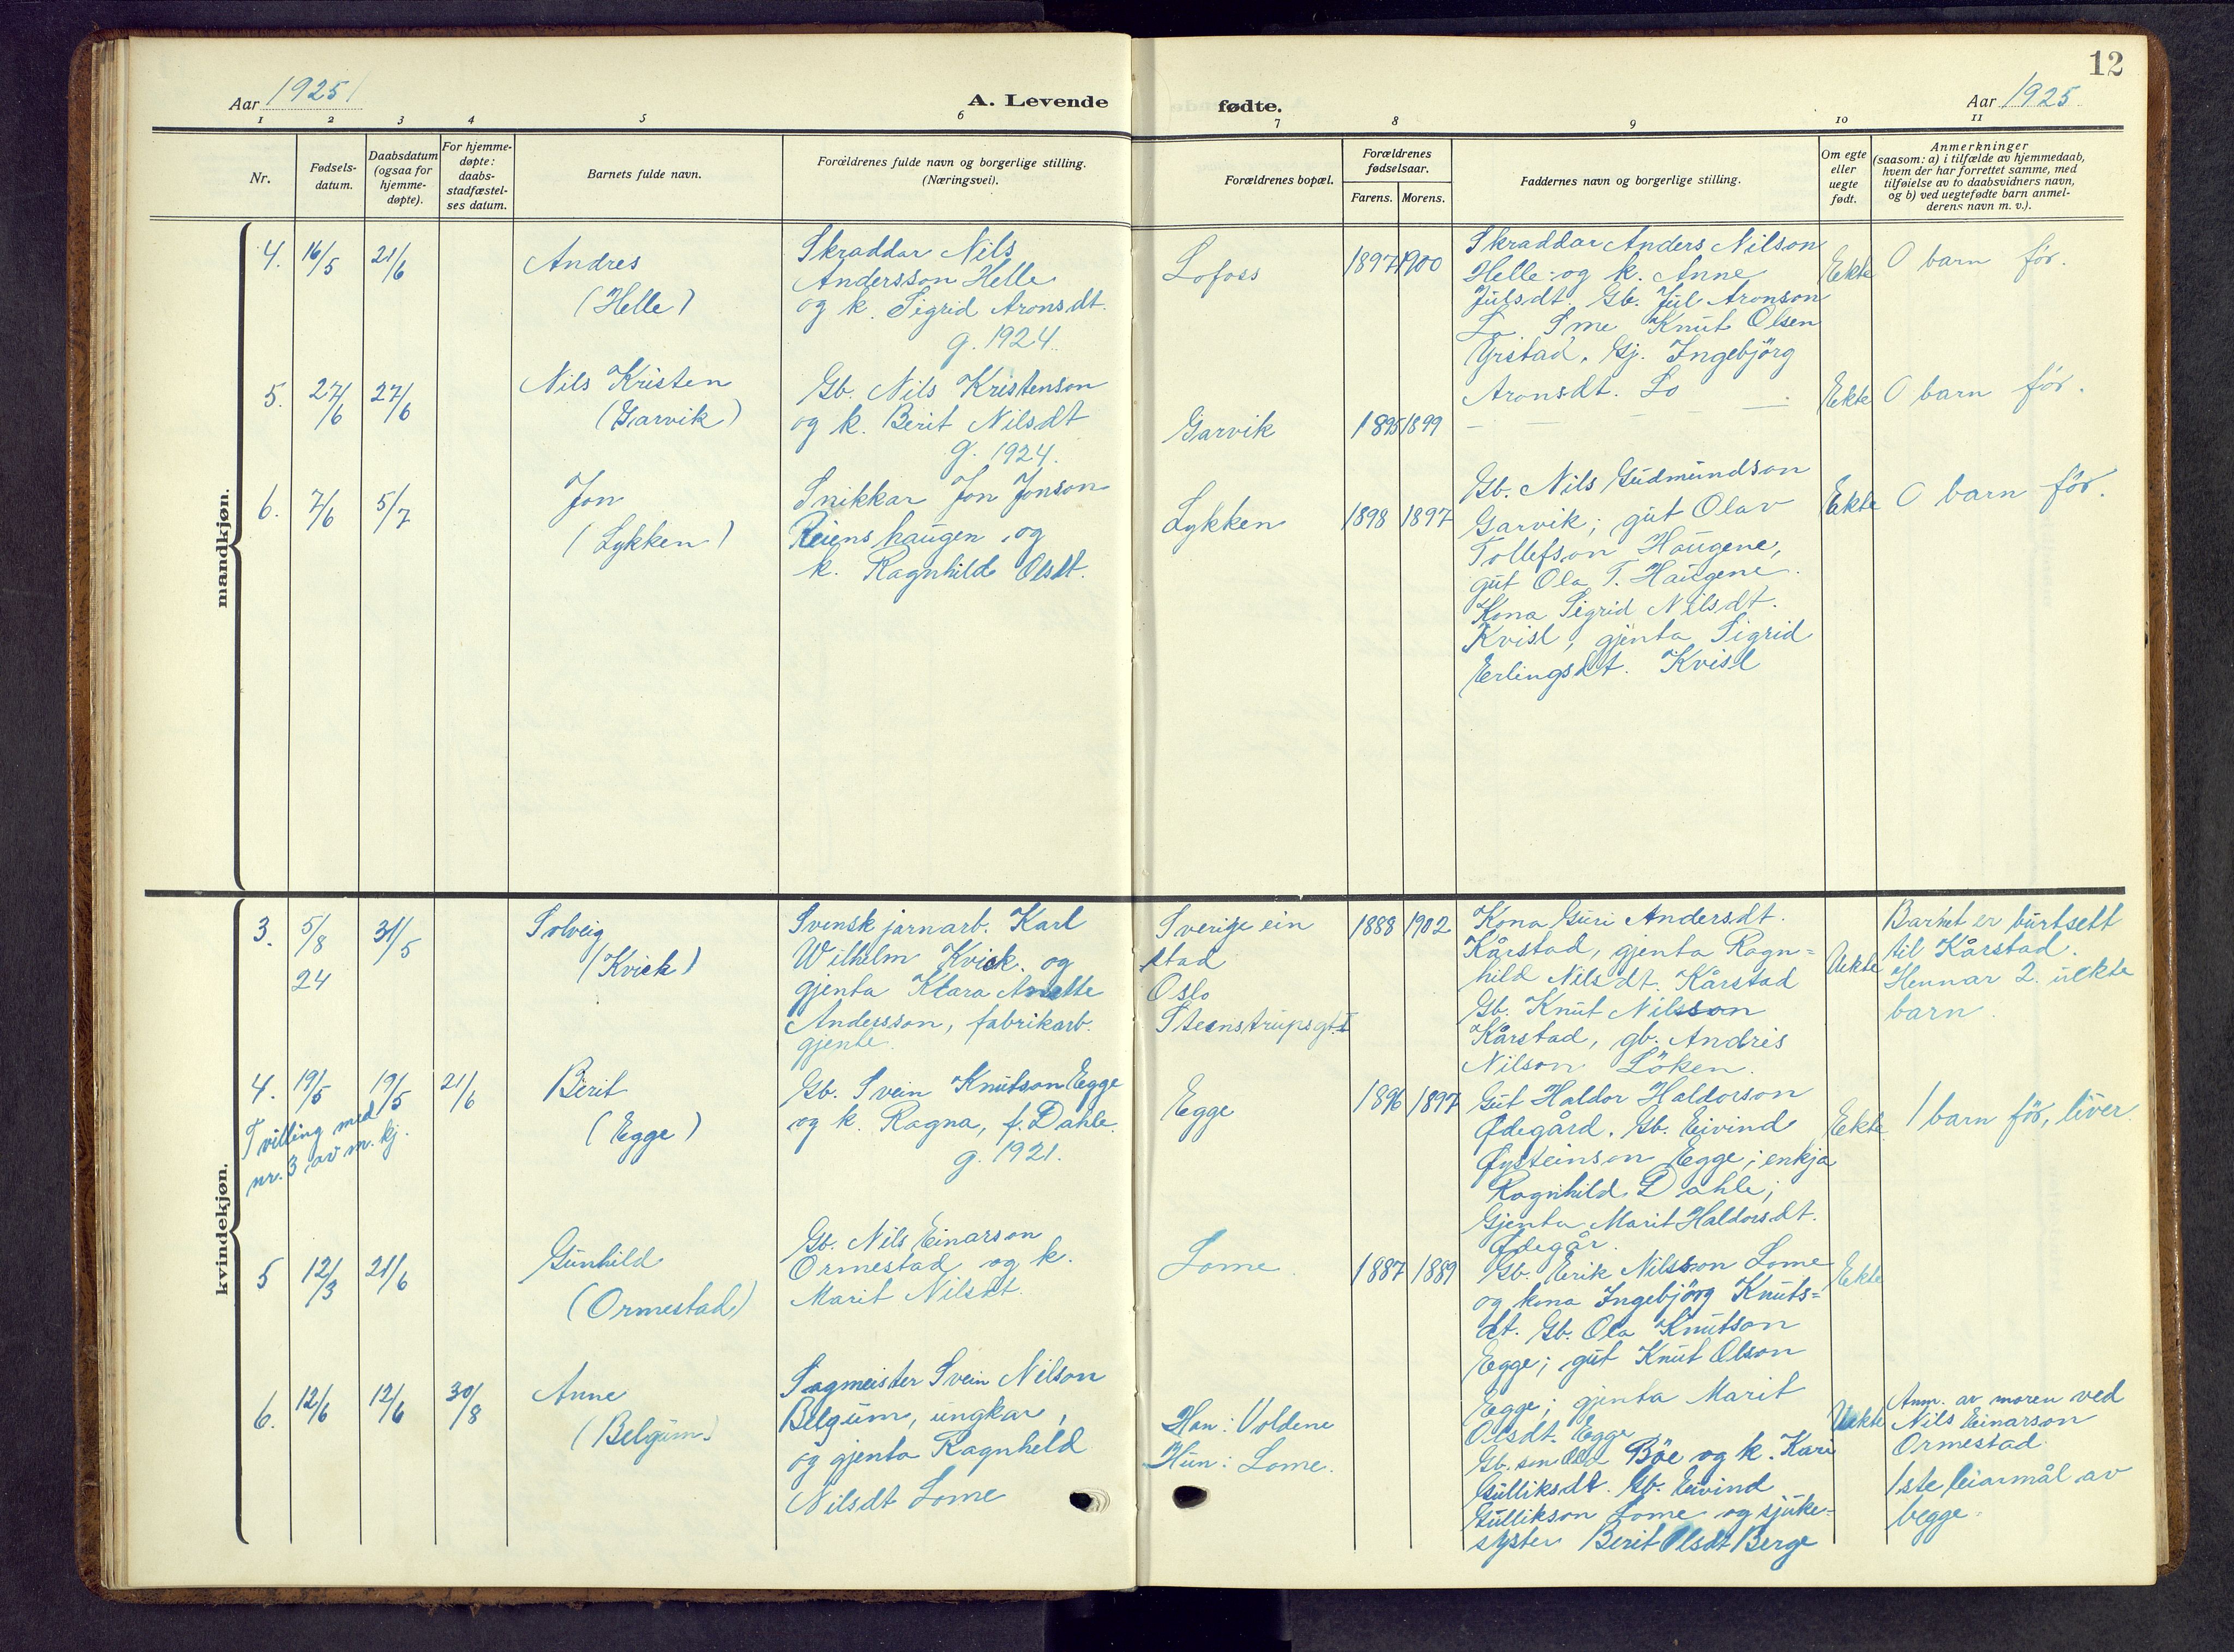 12
Aar 1925
A. Levende
fødte.
Aar 1925.
1 2 3 4 5 6 7 8 9 10 11
Nr.
Fødsels-
datum.
Daabsdatum
(ogsaa for
hjemme-
døpte).
For hjemme-
døpte:
daabs-
stadfæstel-
ses datum.
Barnets fulde navn.
Forældrenes fulde navn og borgerlige stilling.
(Næringsvei).
Forældrenes bopæl.
Forældrenes
fødselsaar.
Farens. Morens.
Faddernes navn og borgerlige stilling.
Om egte
eller
uegte
født.
Anmerkninger
(saasom: a) i tilfælde av hjemmedaab,
hvem der har forrettet samme, med
tilføielse av to daabsvidners navn,
og b) ved uegtefødte barn anmel-
derens navn m. v.).
mandkjøn.
4. 16/5 21/6
Andres
(Helle)
Skraddar Nils
Andersson Helle
og k. Sigrid Aronsdt.
g. 1924.
Lofoss
1897 1900
Skraddar Anders Nilson
Helle og k. Anne
Julsdt. Gb. Jul Aronson
Lo Sme Knut Olsen
Yrstad. Gj. Ingebjörg
Aronsdt. Lo
Ekte
0 barn för.
5. 27/6 27/6
Nils Kristen
(Garvik)
Gb. Nils Kristenson
og k. Berit Nilsdt
g. 1924.
Garvik
1895 1899
— — —.
Ekte
0 barn för.
6. 7/6 5/7
Jon
(Lykken)
Snikkar Jon Jonson
Reienshaugen og
k. Ragnhild Olsdt.
Lykken
1898 1897
Gb. Nils Gudmundson
Garvik; gut Olav
Tollefson Haugene,
gut Ola T. Haugene.
Kona Sigrid Nilsdt.
Kvisl, gjenta Sigrid
Erlingsdt. Kvisl
Ekte
0 barn för.
kvindekjøn.
3. 5/8 31/5
24
Solveig
(Kvick)
Svensk jarnarb. Karl
Wilhelm Kvick og
gjenta Klara Anette
Andersson, fabrikarb.
gjente.
Sverige ein
stad
Oslo
Steenstrupsgt. I
1888 1902
Kona Guri Andersdt.
Kårstad, gjenta Ragn=
hild Nilsdt. Kårstad
Gb. Knut Nilsson
Kårstad, gb. Andris
Nilson Löken.
Uekte
Barnet er burtsett
til Kårstad.
Hennar 2. uekte
barn.
4. 19/5 19/5 21/6
Tvilling med
nr. 3 av m. kj.
Berit
(Egge)
Gb. Svein Knutson Egge
og k. Ragna, f. Dahle.
g. 1921.
Egge
1896 1897
Gut Haldor Haldorson
Ødegård. Gb. Eivind
Øysteinson Egge; enkja
Ragnhild Dahle;
Gjenta Marit Haldorsdt.
Ødegår.
Ekte
1 barn för, liver
5 12/3 21/6
Gunhild
(Ormestad)
Gb. Nils Einarson
Ormestad og k.
Marit Nilsdt.
Lome.
1887 1889
Gb. Erik Nilsson Lome
og kona Ingebjörg Knuts=
dt. Gb. Ola Knutson
Egge; gut Knut Olson
Egge; gjenta Marit
Olsdt. Egge
Ekte
6. 12/6 12/6 30/8
Anne
(Belgum)
Sagmeister Svein Nilson
Belgum, ungkar,
og gjenta Ragnheld
Nilsdt Lome
Han: Voldene
Hun: Lome.
Gb. son Böe og k. Kari
Gulliksdt. Gb. Eivind
Gullikson Lome og sjuke=
syster Berit Olsdt Berge
Uekte
Anm. av moren ved
Nils Einarson
Ormestad.
1ste leiarmål av
begge.